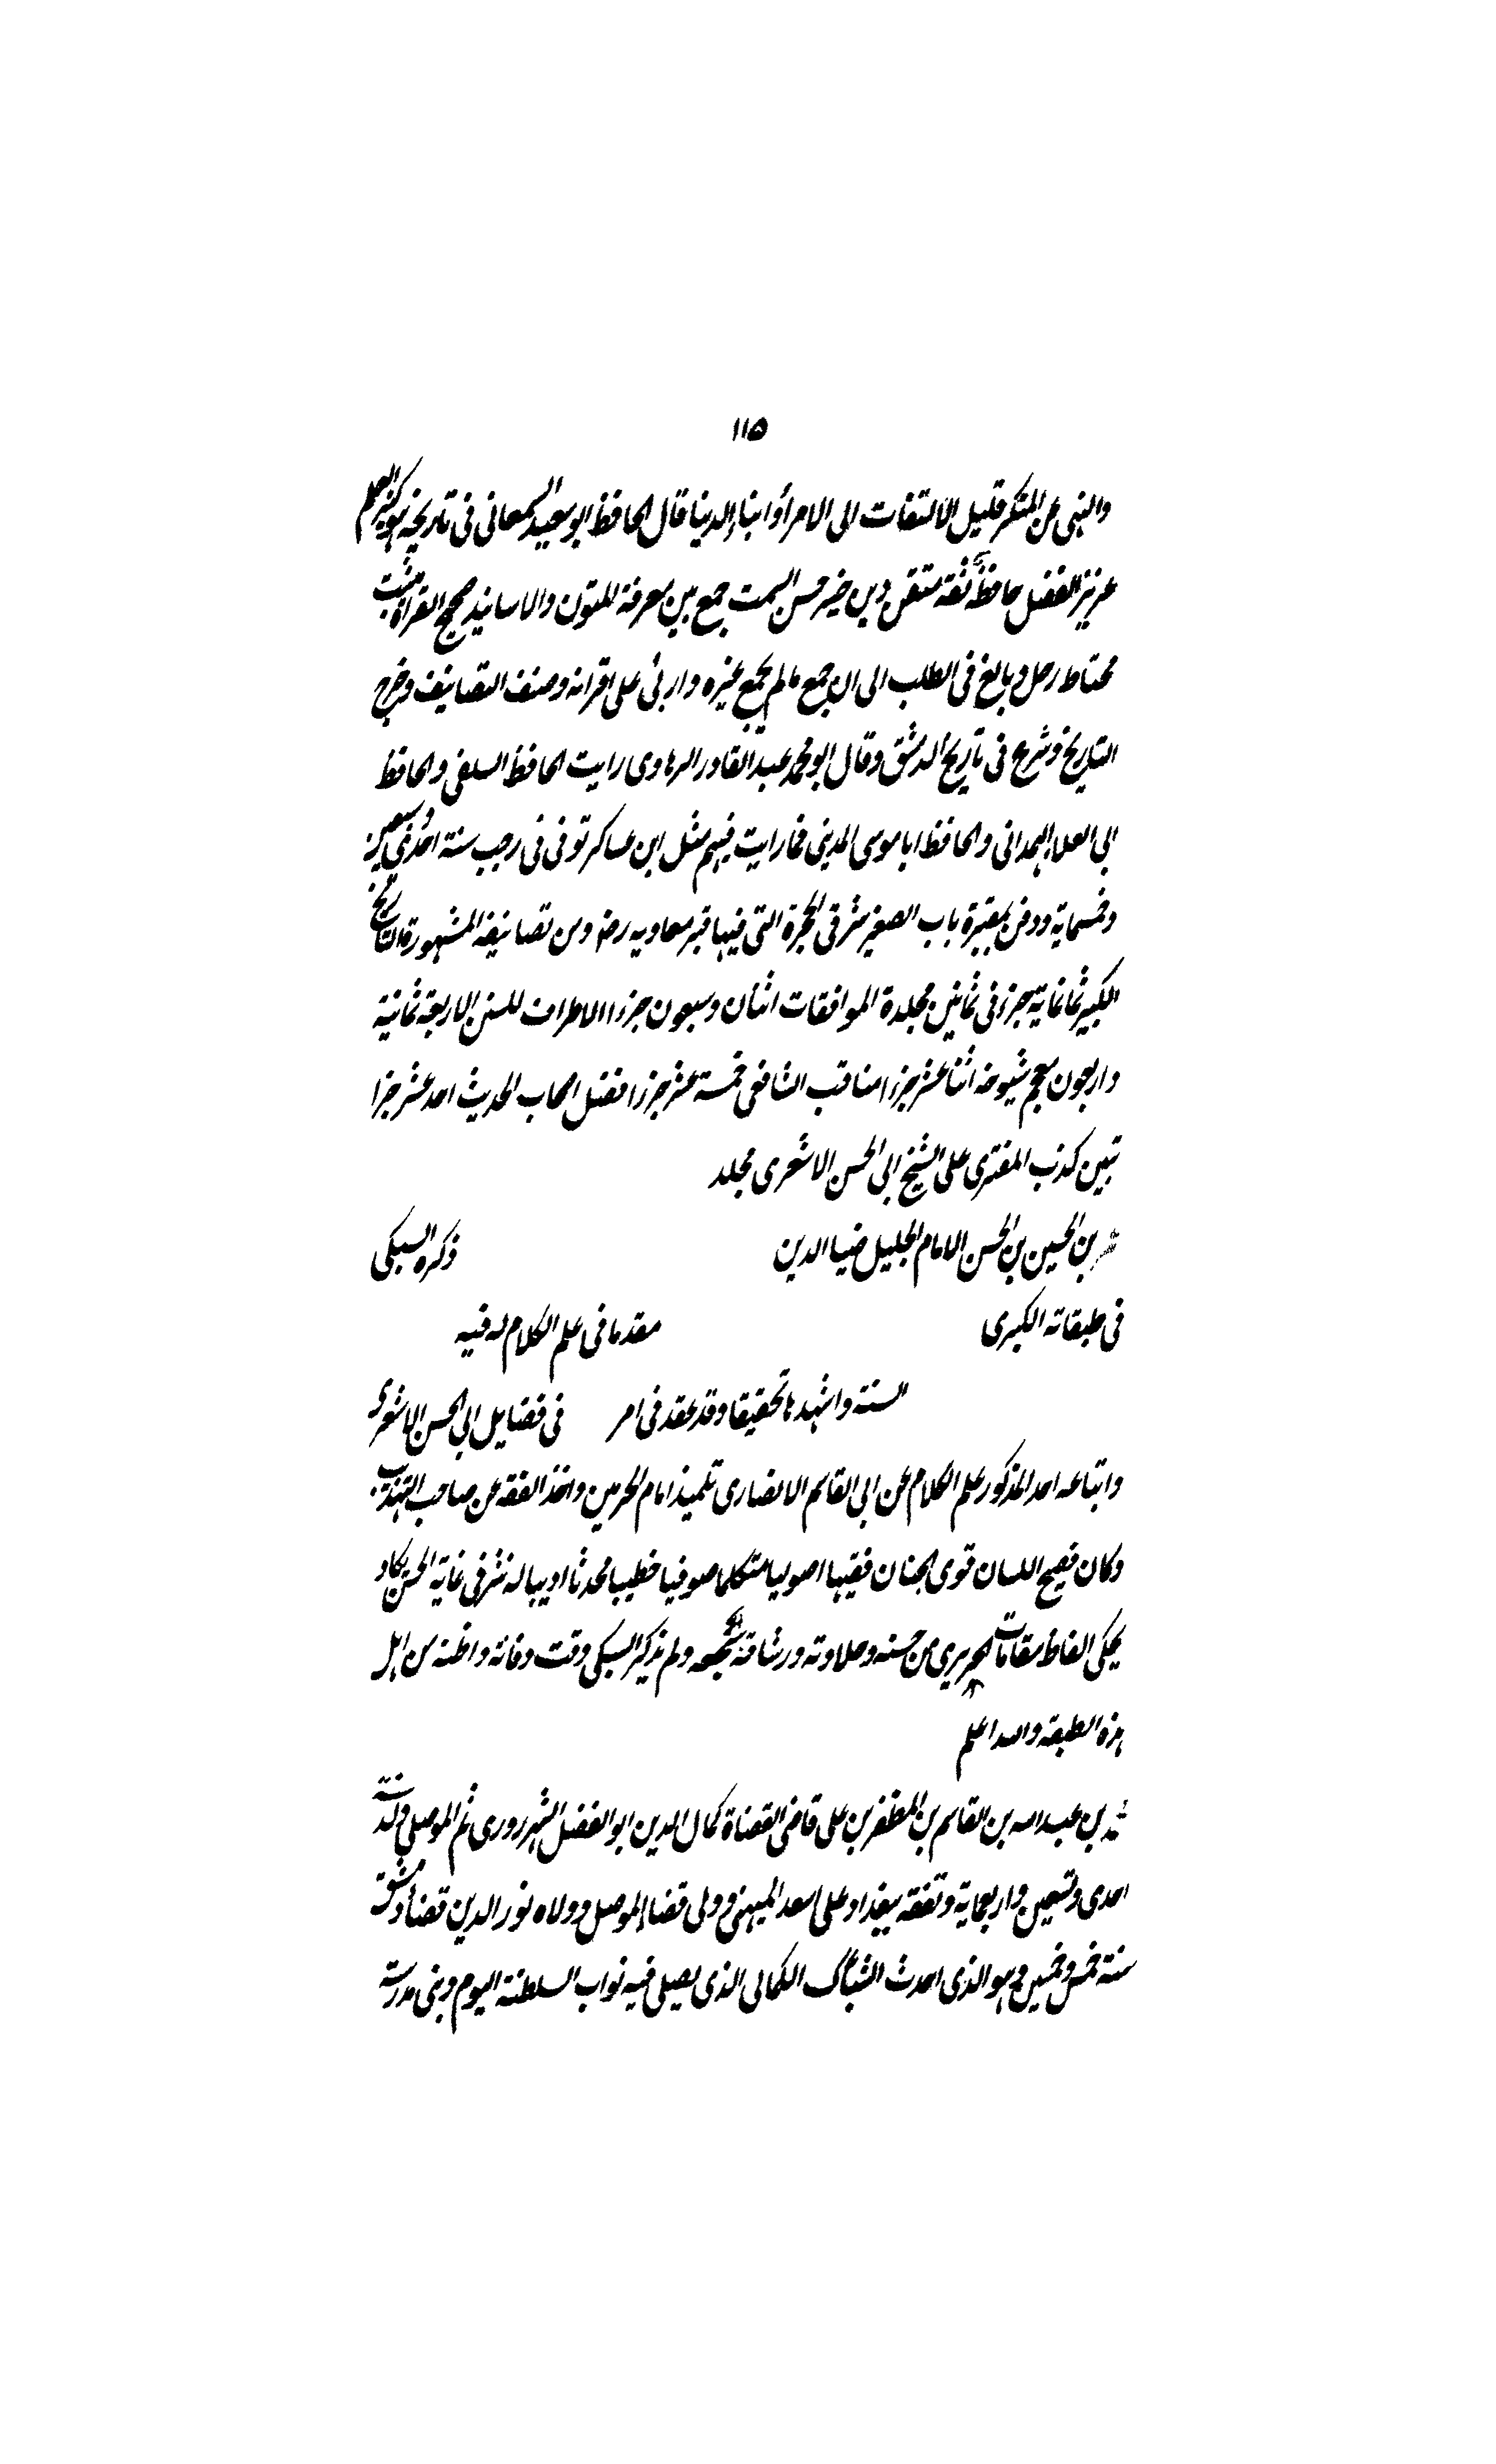 ١١٥
والنهى عن المنكر قليل الالتفات الى الامرأ وابناء الدنيا قال الحافظ ابو سعيد السمعانى فى تاريخه هو كثير العلم
عزيز الفضل حافظ ثقة متقن دين خير حسن السمت جمع بين معرفة المتون والاسانيد صحيح القراة مثبت
محتاط رحل وبالغ فى الطلب الى ان جمع مالم يجمع غيره واربى على اقرانه وصنف التصانيف وخرج
التاريخ وشرع فى تاريخ الدمشق وقال ابو محمد عبد القادر الرهاوى رايت الحافظ السلفى والحافظ
ابى العلاء الهمدانى والحافظ ابا موسى المدينى فما رايت فيهم مثل ابن عساكر توفى فى رجب سنة احدى وسبعين
وخمسماية ودفن بمقبرة باب الصغير شرقى الحجرة التى فيها قبر معاويه رضه ومن تصانيفه المشهورة التاريخ
الكبير ثمانماية جزء فى ثمانين مجلدة الموافقات اثنان وسبعون جزءا الاطراف للسنن الاربعة ثمانية
واربعون معجم شيوخه اثنا عشر جزءا مناقب الشافعى خمسة عشر جزءا فضل اصحاب الحديث احد عشر جزءا
تبين كذب المفترى على الشيخ ابى الحسن الاشعرى مجلد
بن الحسين بن الحسن الامام الجليل ضيا الدين ذكره السبكى
فى طبقاته الكبرى مقدما فى علم الكلام له فيه
السنة واشهدها تحقيقا وقد عقد فى امر فى فضايل ابى الحسن الاشعرى
واتباعه احد المذكور علم الكلام عن ابى القاسم الانصارى تلميذ امام الحرمين واخذ الفقه عن صاحب التهذيب
وكان فصيح اللسان قوى الجنان فقيها اصوليا متكلما صوفيا خطيبا محدثا اديبا له نثر فى غاية الحسن يكاد
يحكى الفاظ مقامات الحريرى من حسنه وحلاوته ورشاقة سجعه ولم يذكر السبكى وقت وفاته واظنه من اهل
هذه الطبقة والله اعلم
محمد بن عبد الله بن القاسم بن المظفر بن على قاضى القضاة كمال الدين ابو الفضل الشهرزورى ثم الموصلى ولد سنة
احدى وتسعين واربعماية وتفقه ببغداد على اسعد الميهنى وولى قضاء الموصل وولاه نور الدين قضاء دمشق
سنة خمس وخمسين وهو الذى احدث الشباك الكمالى الذى يصلى فيه نواب السلطنة اليوم وبنى مدرسة